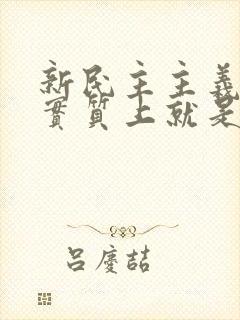 新民主主義
實質上就是
呂慶喆